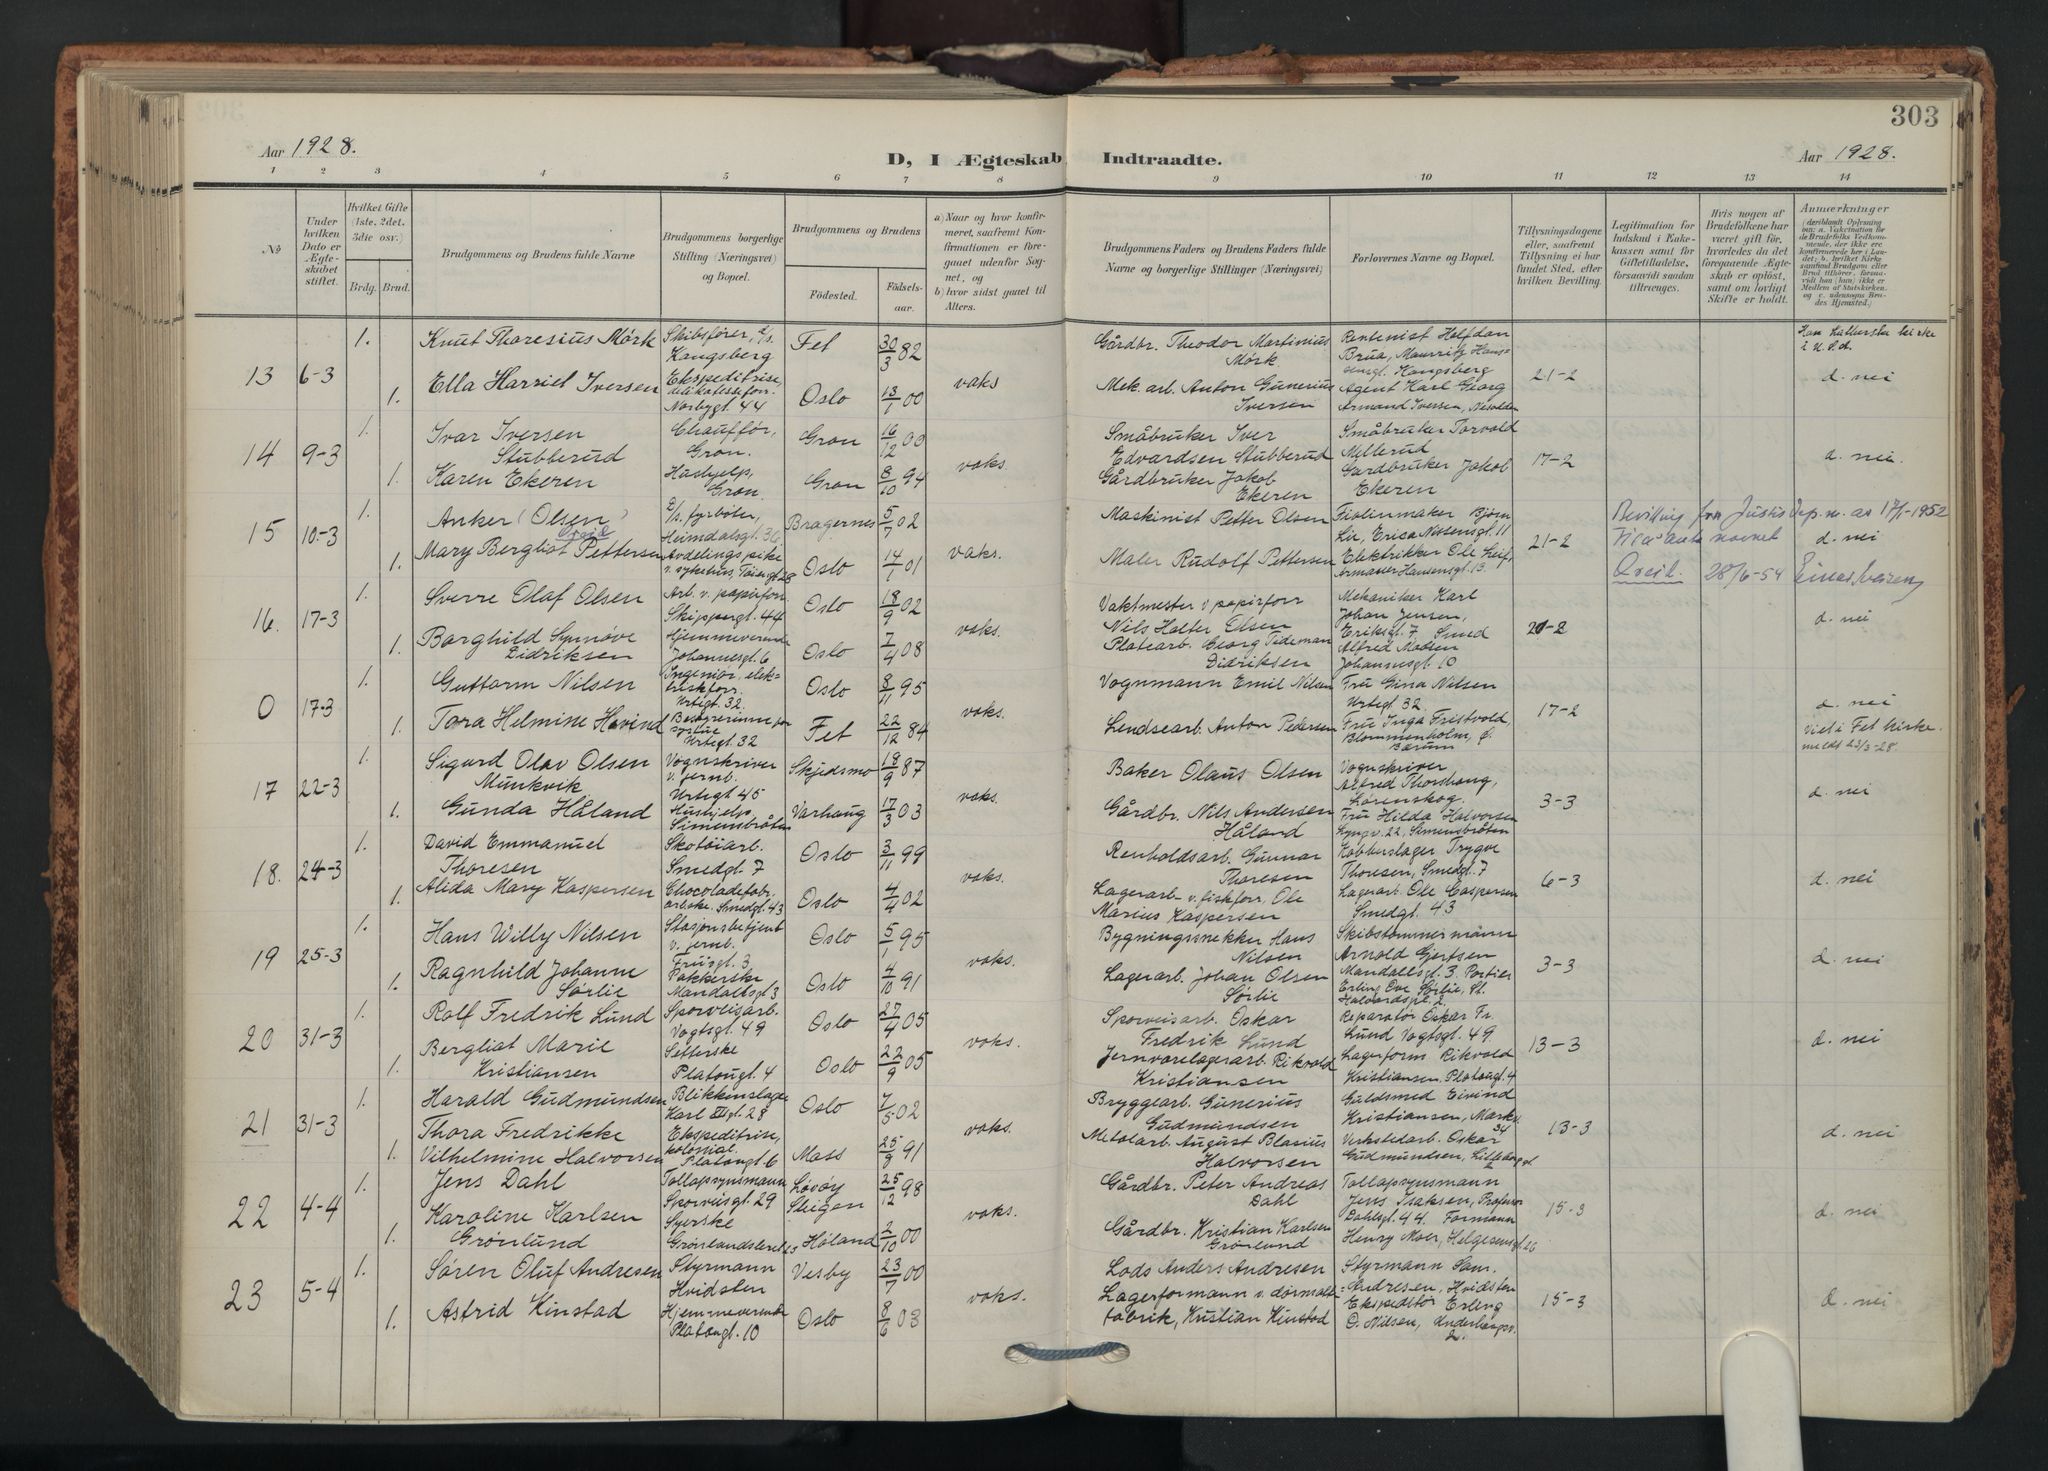 303
Aar 1928.
D, I Ægteskab Indtraadte.
Aar 1928.
1 2 3 4 5 6 7 8 9 10 11 12 13 14
№
Under hvilken Dato er Ægteskabet stiftet.
Hvilket Gifte (1ste, 2det, 3die osv.)
Brdg. Brud.
Brudgommens og Brudens fulde Navne
Brudgommens borgerlige Stilling (Næringsvei) og Bopæl.
Brudgommens og Brudens
Födested.
Födselsaar.
a) Naar og hvor konfirmeret, saafremt Konfirmationen er foregaaet udenfor Sognet, og
b) hvor sidst gaaet til Alters.
Brudgommens Faders og Brudens Faders fulde Navne og borgerlige Stillinger (Næringsvei)
Forlovernes Navne og Bopæl.
Tillysningsdagene eller, saafremt Tillysning ei har fundet Sted, efter hvilken Bevilling.
Legitimation for Indskud i Enkekassen samt for Giftetilladelse, forsaavidt saadan tiltrænges.
Hvis nogen af Brudefolkene har været gift för, hvorledes da det foregaaende Ægteskab er oplöst, samt om lovligt Skifte er holdt.
Anmærkninger
13 6-3
1. Knut Thoresius Mørk Skibsfører, Kongsberg Fet 30/3 82
1. Ella Harriet Iversen Ekspeditrise, Norbygt. 44 Oslo 13/1 00
vaks
Gårdbr. Theodor Martinius Mørk
Mek. arb. Anton Gunerius Iversen
Rentenist Halfdan Brua, Kongsberg
Agent Karl Georg Armand Iversen, Nesodden
21-2
d. nei
14 9-3
1. Ivar Iversen Stubberud Chauffør, Gran. Gran 16/12 00
1. Karen Ekeren Hushjelp, Gran. Gran 8/10 94
vaks.
Småbruker Iver Edvardsen Stubberud
Gårdbruker Jakob Ekeren
Småbruker Torvald Mellerud
Gardbruker Jakob Ekeren
17-2
d. nei.
15 10-3
1. Anker (Olsen) Qveil fyrbøter, Heimdalsgt. 36 Bragernes 5/7 02
1. Mary Bergliot Pettersen Avdelingspike v. sykehus, Tøiengt. 28 Oslo 14/1 01
vaks.
Maskinist Petter Olsen
Maler Rudolf Pettersen
Fiolinmaker Bjørn Lie, Erica Nissensgt. 11
Elektrikker Ole Leif, Armauer Hansensgt. 13.
21-2
Bevilling fra Justisdep. m. av 17/1-1952
navnet
d. nei
Qveil. 28/6-54
16. 17-3
1. Sverre Olaf Olsen Arb. v. papirforr. Skippergt. 44 Oslo 18/9 02
1. Borghild Synnøve Didriksen Hjemmeværende Johannesgt. 6 Oslo 7/4 08
vaks.
Vaktmester v papirforr Nils Halter Olsen
Platearb. Georg Tideman Didriksen
Mekaniker Karl Johan Jensen, Eriksgt. 7. Smed Alfred Madsen Johannesgt. 10
21-2
d. nei
0 17-3
1. Guttorm Nilsen Ingeniør, elektriskforr. Urtegt. 32. Oslo 8/11 95
1. Tora Helmine Hovind Bestyrerinne for systue Urtegt. 32 Fet 22/12 84
vaks.
Vognmann Emil Nilsen
Lendsearb. Anton Pedersen
Fru Gina Nilsen Urtegt. 32
Fru Inga Fristvold, Blommenholm, Ø. Bærum
17-2
d. nei
Viet i Fet kirke.
meldt 23/3-28.
17 22-3
1. Sigurd Olav Olsen Munkvik Vognskriver v. jernb. Urtegt 45 Skjedsmo 18/9 87
1. Gunda Håland Hushjelp Simensbråten Varhaug 17/3 03
vaks.
Baker Olaus Olsen
Gårdbr. Nils Andersen Håland
Vognskriver Alfred Thorshaug, Lørenskog.
Fru Hilda Halvorsen 22, Simensbråten
3-3
d. nei
18. 24-3
1. David Emmanuel Thoresen Skotøiarb. Smedgt. 7 Oslo 3/11 99
1. Alida Mary Kaspersen Chocoladefabr. arbske. Smedgt. 43 Oslo 4/4 02
vaks.
Renholdsarb. Gunnar Thoresen
Lagerarb v. fiskforr. Ole Marius Kaspersen
Kobberslager Trygve Thoresen, Smedgt. 7
Lagerarb. Ole Caspersen Smedgt. 43
6-3
d. nei
19 25-3
1. Hans Willy Nilsen Stasjonsbetjent v. jernb. Friisgt. 3 Oslo 5/1 95
1. Ragnhild Johanne Sørlie Pakkerske Mandallsgt 3 Oslo 4/10 91
vaks.
Bygningssnekker Hans Nilsen
Lagerarb. Johan Olsen Sørlie
Skibstømmermann Arnold Gjertsen Mandallsgt. 3. Portier Erling Ove Sørlie, St. Halvardspl. 2.
3-3
d. nei
20 31-3
1. Rolf Fredrik Lund Sporveisarb. Vogtsgt. 49 Oslo 27/4 05
1. Bergliot Marie Kristiansen Setterske Platougt. 4 Oslo 22/9 05
vaks.
Sporveisarb. Oskar Fredrik Lund
Jernvarelagerarb. Rikvald Kristiansen
Reparatør Oskar Fr. Lund Vogtsgt. 49.
Lagerform Rikvold Kristiansen. Platougt. 4
13-3
d. nei
21 31-3
1. Harald Gudmundsen Blikkenslager Karl XII gt. 28 Oslo 7/5 02
1. Thora Fredrikke Vilhelmine Halvorsen Ekspeditrise, kolonial. Platougt. 6 Moss 25/8 91
vaks.
Bryggearb. Gunerius Gudmundsen
Metalarb. August Blasius Halvorsen
Guldsmed Eivind Kristiansen, Markv. 34
Verkstedarb. Oskar Gudmundsen,
13-3
d. nei
22 4-4
1. Jens Dahl Tollopsynsmann Sporveisgt. 29 Løvøy Steigen 25/12 98
1. Karoline Karlsen Grønlund Syerske Grønlandsleret Høland 2/10 00
vaks.
Gårdbr. Peter Andreas Dahl
Gårdbr. Kristian Karlsen Grønlund
Tollopsynsmann Jens Isaksen, Professor Dahlsgt. 44. Formann Henry Moer, Helgesensgt. 26
15-3
d. nei
23 5-4
1. Søren Oluf Andresen Styrmann Hvidsten Vesby 23/7 00
1. Astrid Kinstad Hjemmeværende Platougt. 10 Oslo 8/6 03
vaks.
Lods Anders Andresen
Lagerformann v. dørmattefabrik, Kristian Kinstad
Styrmann Sam. Andresen, Hvidsten
Ekspeditør Erling O. Nilsen,
15-3
d. nei